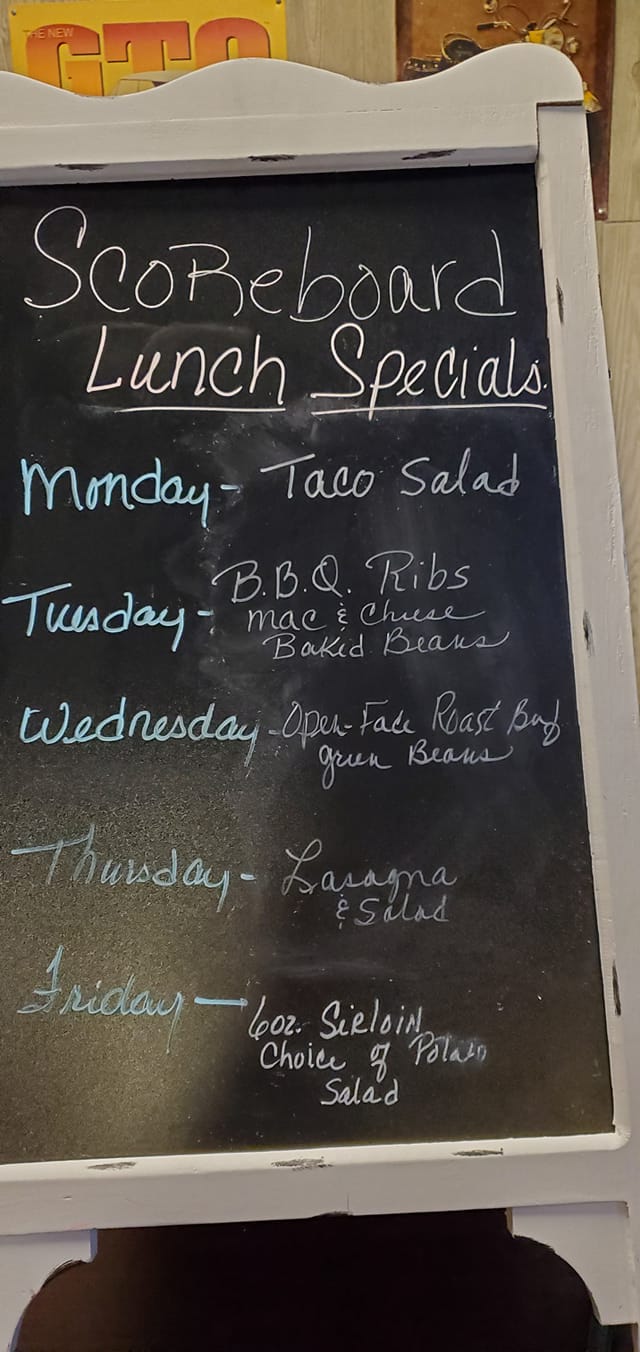 THE NEW
GTO
Scoreboard
Lunch Specials
Monday - Taco Salad
Tuesday - B.B.Q. Ribs
mac & Cheese
Baked Beans
Wednesday - Open-Face Roast Beef
green Beans
Thursday - Lasagna
& Salad
Friday — 6oz. Sirloin
Choice of Potato
Salad